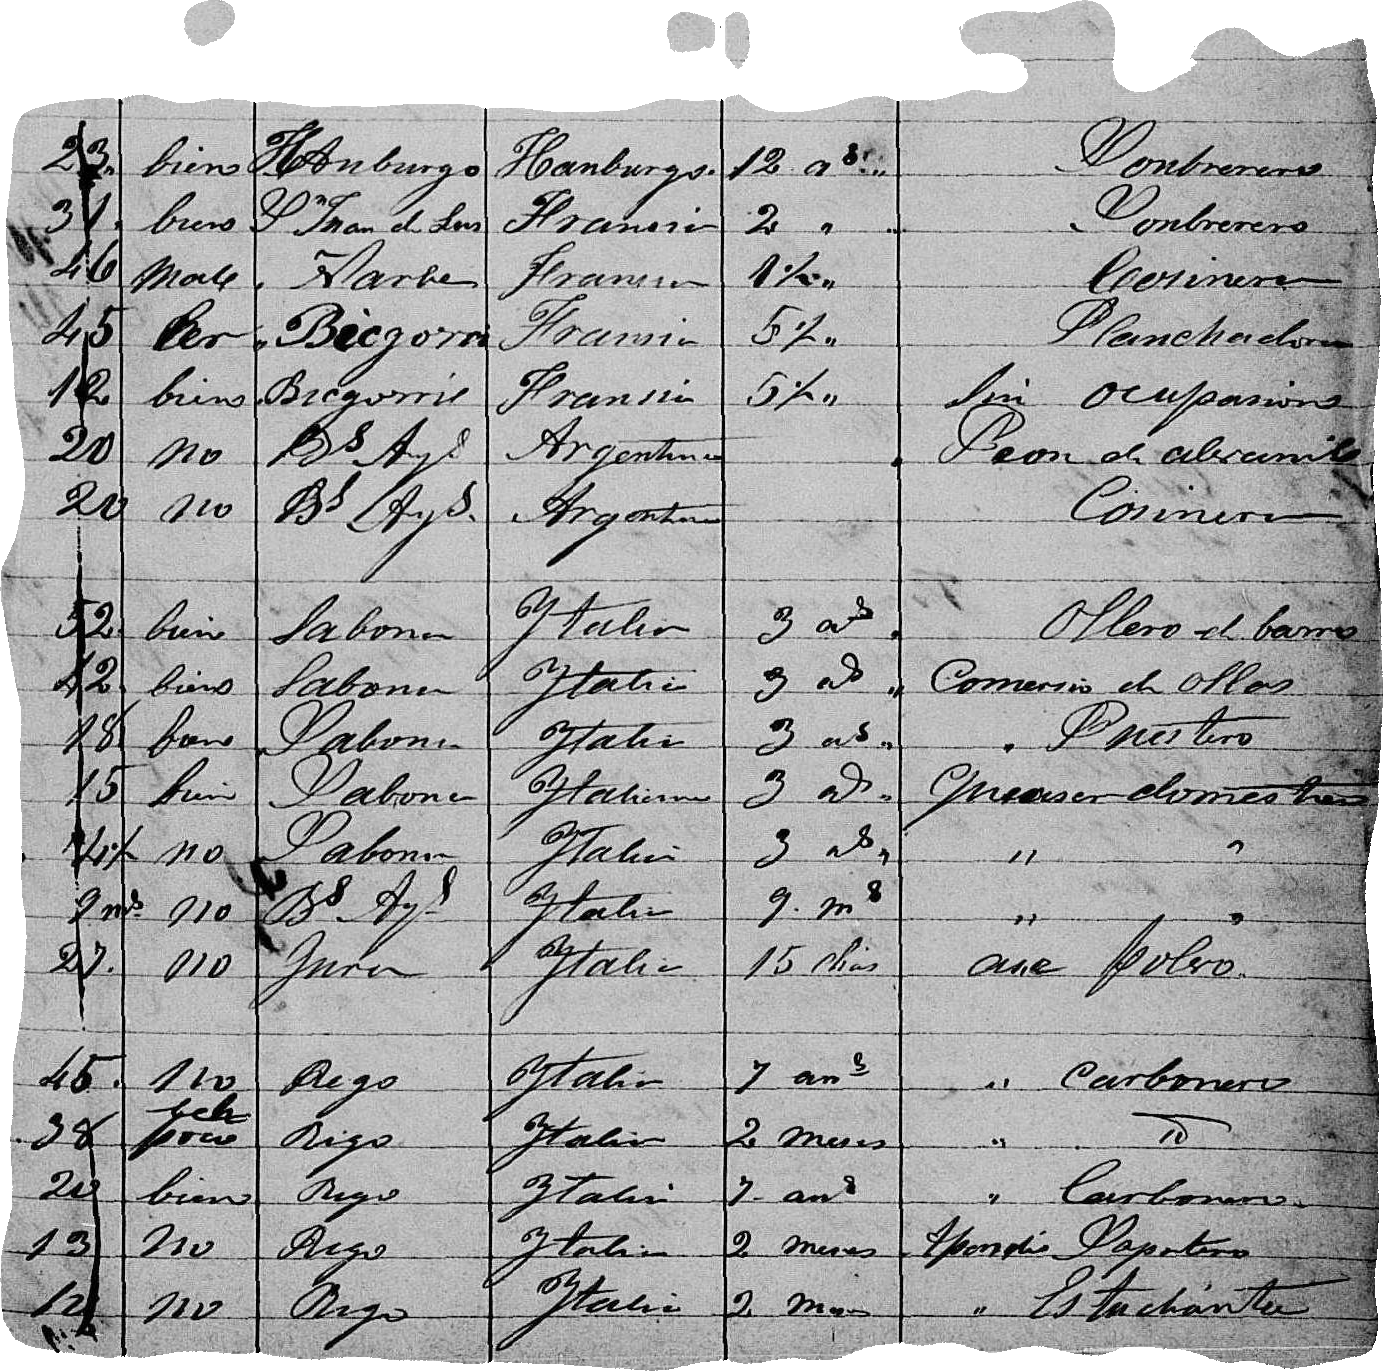 23. bien Hanburgo Hanburgo. 12 aˢ „ Sonbrerero
31. bien Sⁿ Juan de Lus Fransia 2 „ Sonbrerero
46 Fransia 1½ „ Cosinera
45 Ler „ Biegorri Fransia 5½ „ Planchadora
12 bien Biegorrie Fransia 5½ „ Sin ocupasion
20 no Bˢ Ayˢ Argentina Peon de alvanil
20 no Bˢ Ayˢ. Argentina Cosinera
52. bien Sabona Ytalia 3 aˢ Ollero de barro
42. bien Sabona Ytalia 3 aˢ „ Comersio de ollas
18 bien Sabona Ytalia 3 aˢ „ Puestero
15 bien Sabona Ytaliana 3 aˢ „ domestico
4½ no Sabona Ytalia 3 aˢ „ „ „
9 mˢ no Bˢ Ayˢ Ytalia 9. mˢ „ „
27. no Ytalia 15 dias
45. no Rego Ytalia 7 anˢ „ Carbonero
38 poco Rigo Ytalia 2 meses „ Iᵈ
20 bien Rego Ytalia 7. anˢ „ Carbonero
13 no Rego Ytalia 2 meses Sapatero
12 no Rego Ytalia 2 meses „ Estudiante